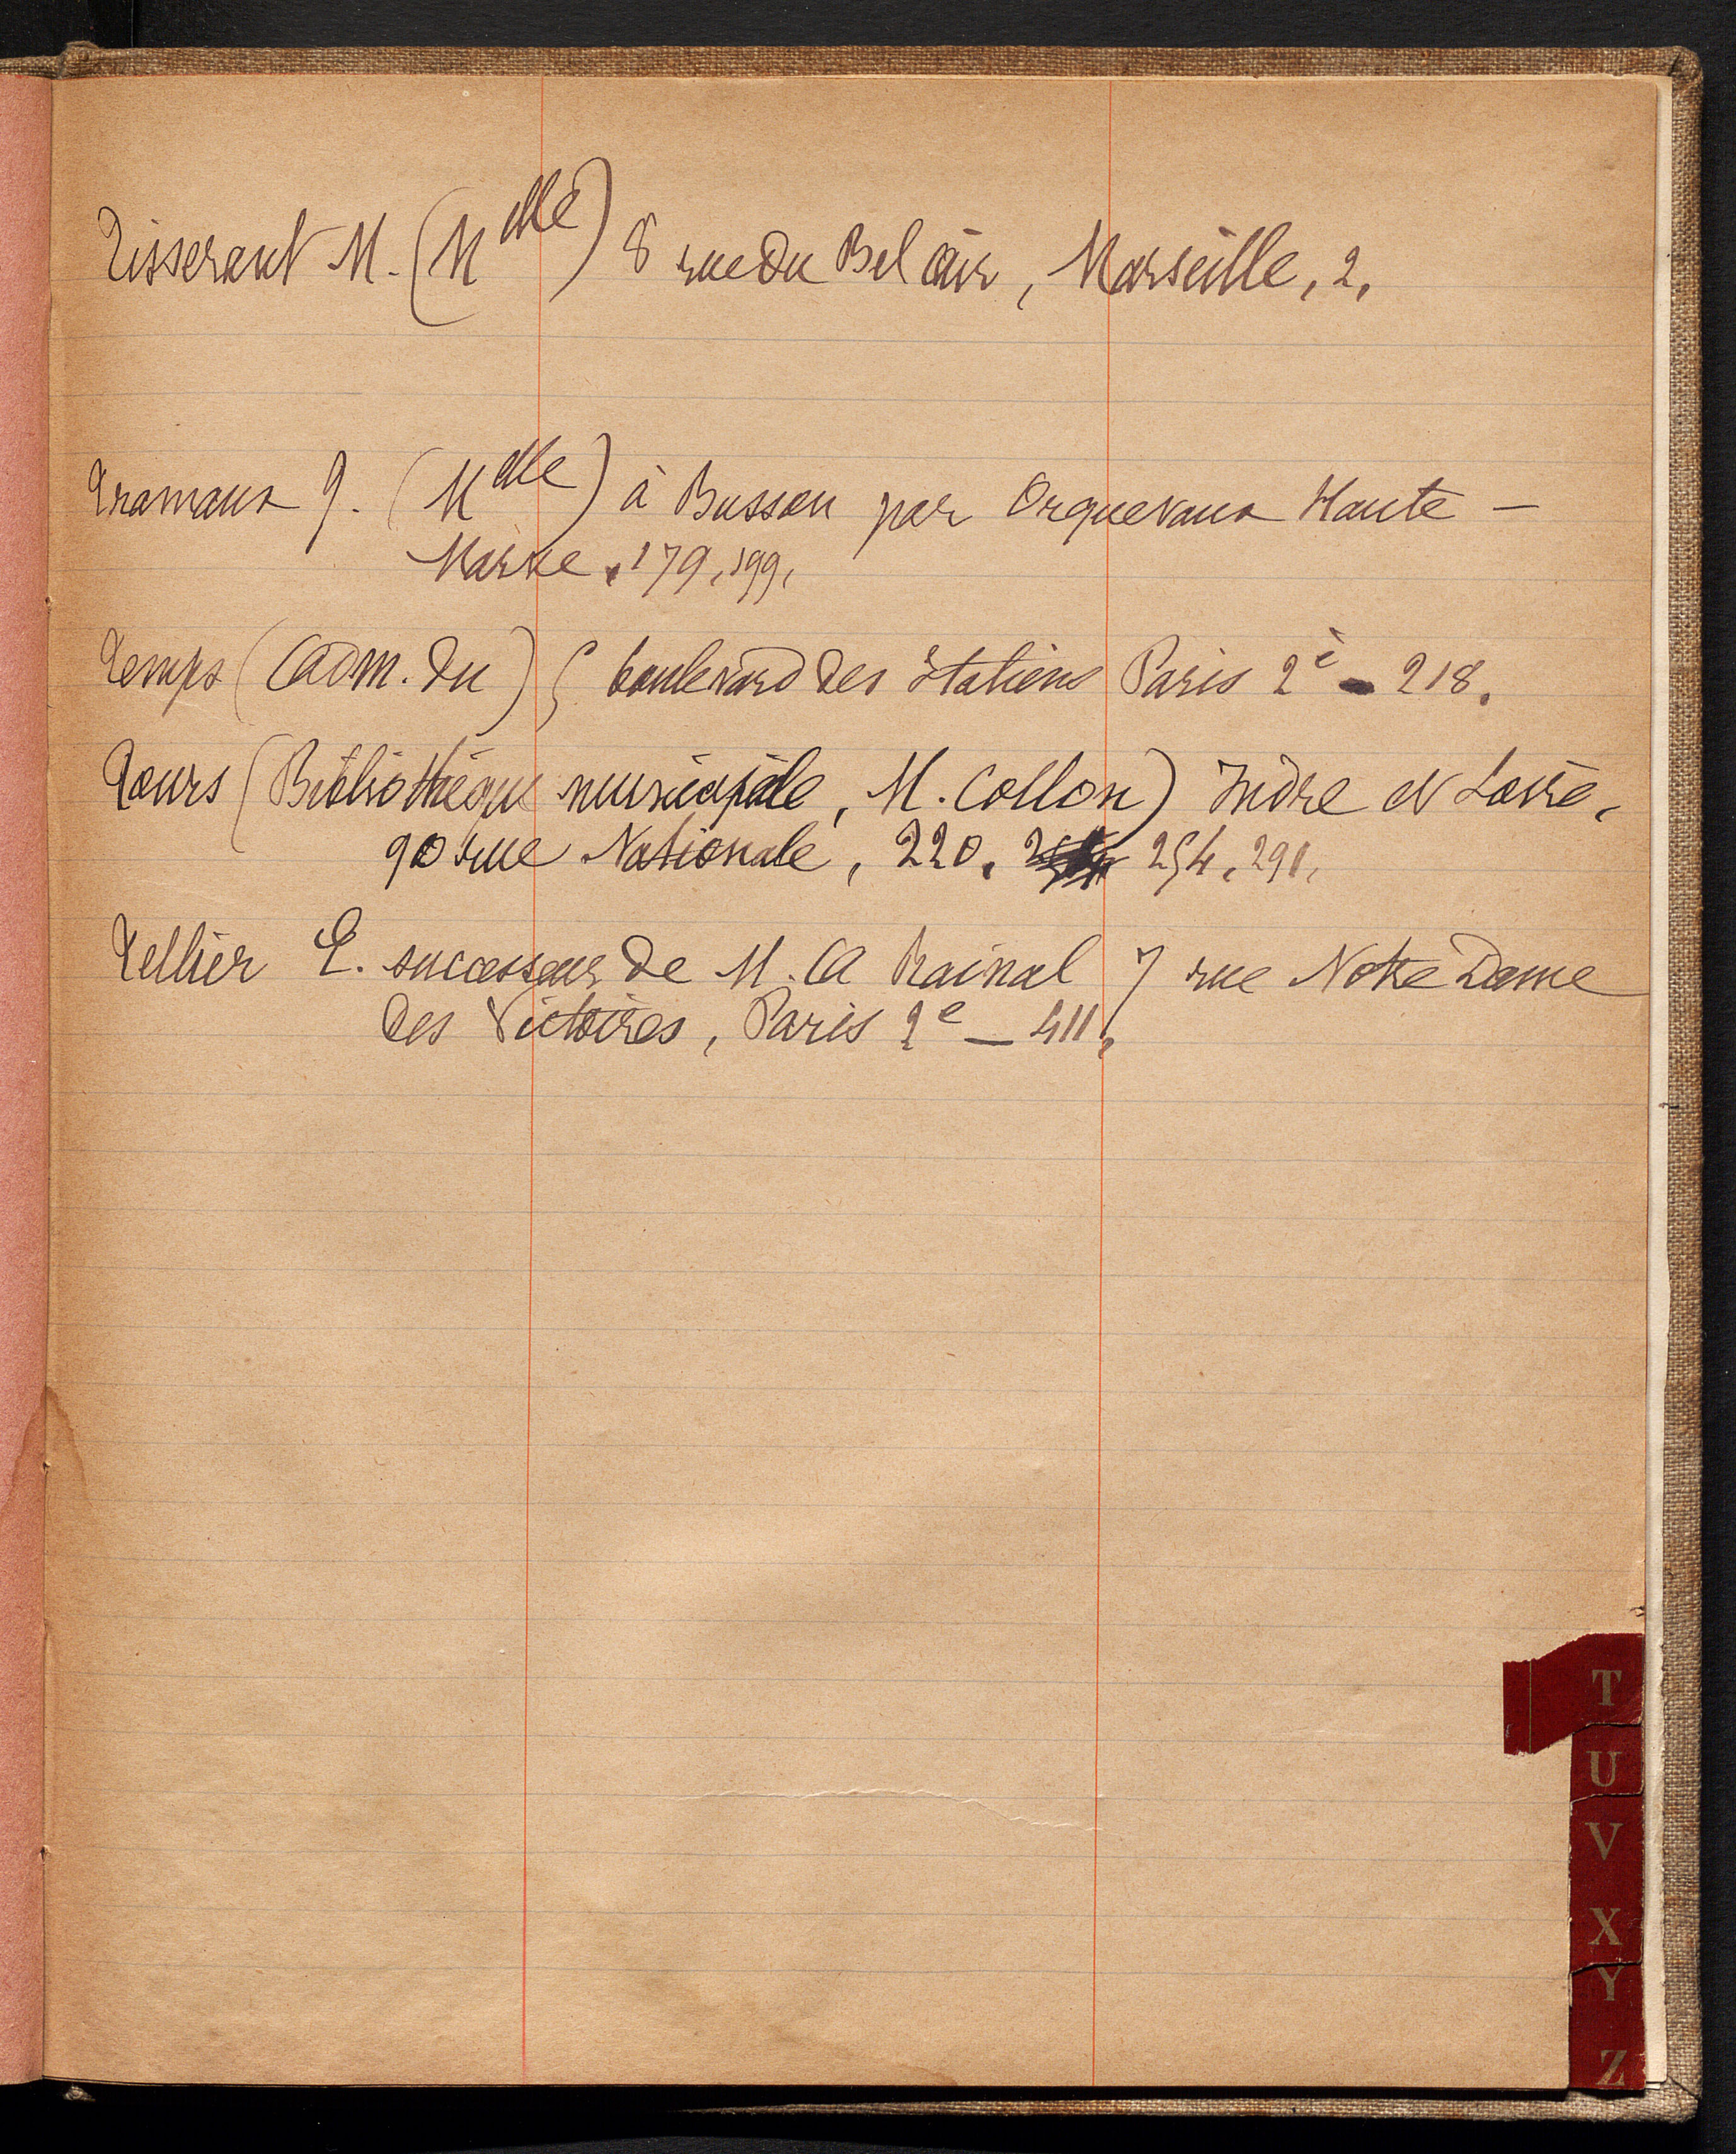 Tisserant M. (Mdelle) 8 rue du Bel air, Marseille, 2,
Tramaux J. (Mdelle) à Busson par Orquevaux Haute –
Marne. 179, 199,
Temps (Adm. du) 5 boulevard des Italiens Paris 2è – 218.
Tours (Bibliothèque municipale, M. Collon) Indre et Loire,
90 rue Nationale, 220. 254, 291,
Tellier E. successeur de M. A Rainal 7 rue Notre Dame
des Victoires, Paris 2e – 411.
T
U
V
X
Y
Z